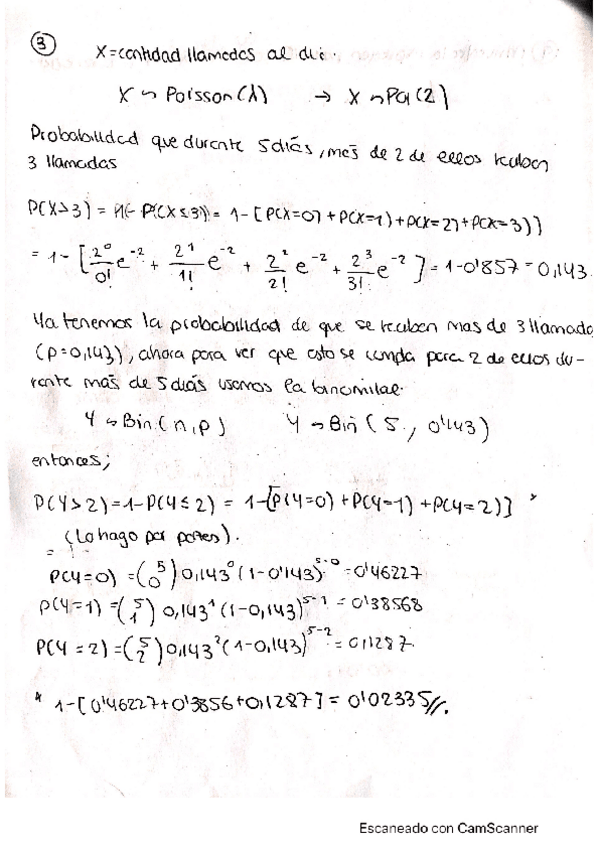 ③ X=cantidad llamadas al día.
X ~ Poisson(λ) → X ~ Poi(2)
Probabilidad que durante 5 días, más de 2 de ellos reciban
3 llamadas
P(X>3) = 1- P(X≤3) = 1-[P(X=0) + P(X=1) + P(X=2) + P(X=3)]
= 1 - [2⁰/0! e⁻² + 2¹/1! e⁻² + 2²/2! e⁻² + 2³/3! e⁻²] = 1-0'857 = 0,143.
Ya tenemos la probabilidad de que se reciban mas de 3 llamada
(p=0,143), ahora para ver que esto se cumpla para 2 de ellos du-
rante más de 5 días usamos la binomial.
Y ~ Bin(n,p) Y ~ Bin(5, 0'143)
entonces;
P(Y>2) = 1-P(Y≤2) = 1-[P(Y=0) + P(Y=1) + P(Y=2)] *
(Lo hago por partes).
P(Y=0) = (5 0) 0,143⁰ (1-0'143)⁵⁻⁰ = 0'46227
P(Y=1) = (5 1) 0,143¹ (1-0,143)⁵⁻¹ = 0'38568
P(Y=2) = (5 2) 0,143² (1-0,143)⁵⁻² = 0,1287.
* 1-[0'46227+0'3856+0,1287] = 0'02335//.
Escaneado con CamScanner